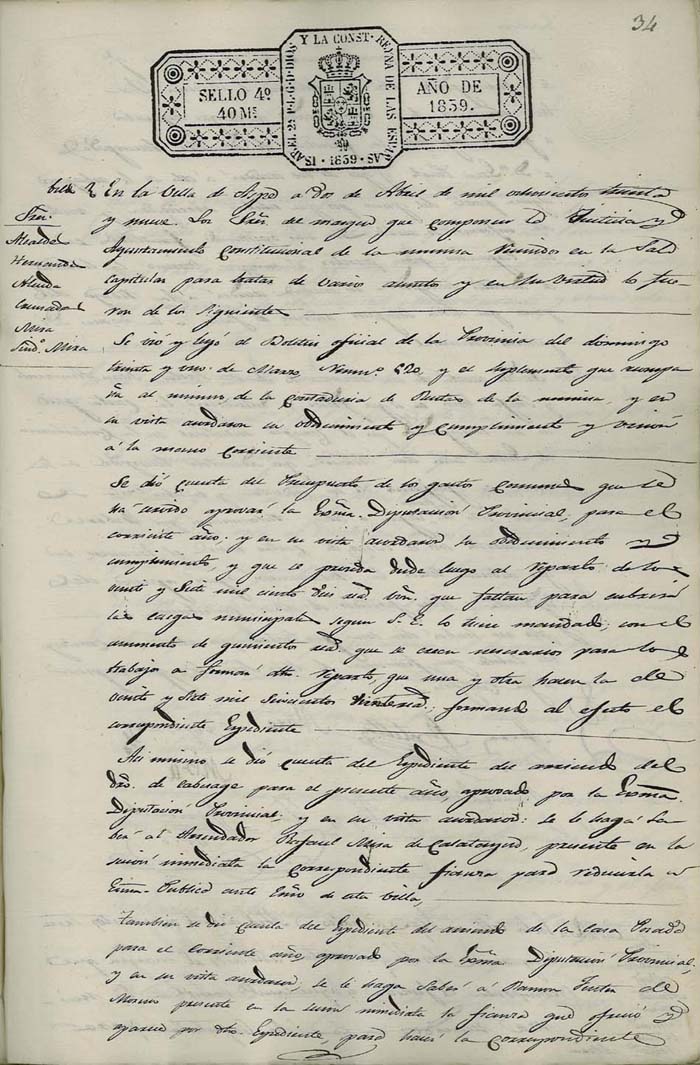 34
ISABEL 2ª P. L. G. D. DIOS Y LA CONST. REYNA DE LAS ESPAÑAS
SELLO 4º
40 Ms
AÑO DE
1839.
· 1839 ·
En la Villa de Aspe a dos de Abril de mil ochocientos treinta
y nueve. Los Sres. del margen que componen la Justicia y
Ayuntamiento Constitucional de la misma reunidos en la Sala
capitular para tratar de varios asuntos y en su virtud lo fue
ron de los siguientes
Sres.
Alcalde
Hernandez
Almda
Cremades
Mira
Sindº. Mira
Se vió y leyó el Boletin oficial de la Provincia del domingo
treinta y uno de Marzo, Numº. y el suplemento que acompa
ña al mismo, de la contaduria de Rentas de la misma, y en
su vista acordaron su obedecimiento y cumplimiento y union
á la mano corriente
Se dió cuenta del Presupuesto de los gastos comunes que se
há servido aprovar la Exma. Diputacion Provincial, para el
corriente año, y en su vista acordaron su obedecimiento y
cumplimiento, y que se proceda desde luego al reparto de los
veinte y siete mil ciento diez rs. von. que faltan para cubrir
las cargas municipales segun S. E. lo tiene mandado, con el
aumento de quinientos rs. que se creen necesarios para los
trabajos a formar dho. reparto, que una y otra hacen la de
veinte y siete mil seiscientos rs.; formando al efecto el
correspondiente Expediente
Asi mismo se dió cuenta del Expediente del arriendo del
dro. de cabezage para el presente año, aprovado por la Exma.
Diputacion Provincial; y en su vista acordaron: se le haga sa
ber al Arrendador Rafael Mira de Calatayud, presente en la
sesion inmediata la correspondiente fianza para reducirla a
Escra. Publica ante Esno de esta villa,
Tambien se dió cuenta del Expediente del arriendo de la casa Posada
para el corriente año, aprovado por la Exma. Diputacion Provincial;
y en su vista acordaron, se le haga saber á Ramon de
Moreno presente en la sesion inmediata la fianza que ofreció y
aparece por dho. Expediente, para hacer la correspondiente